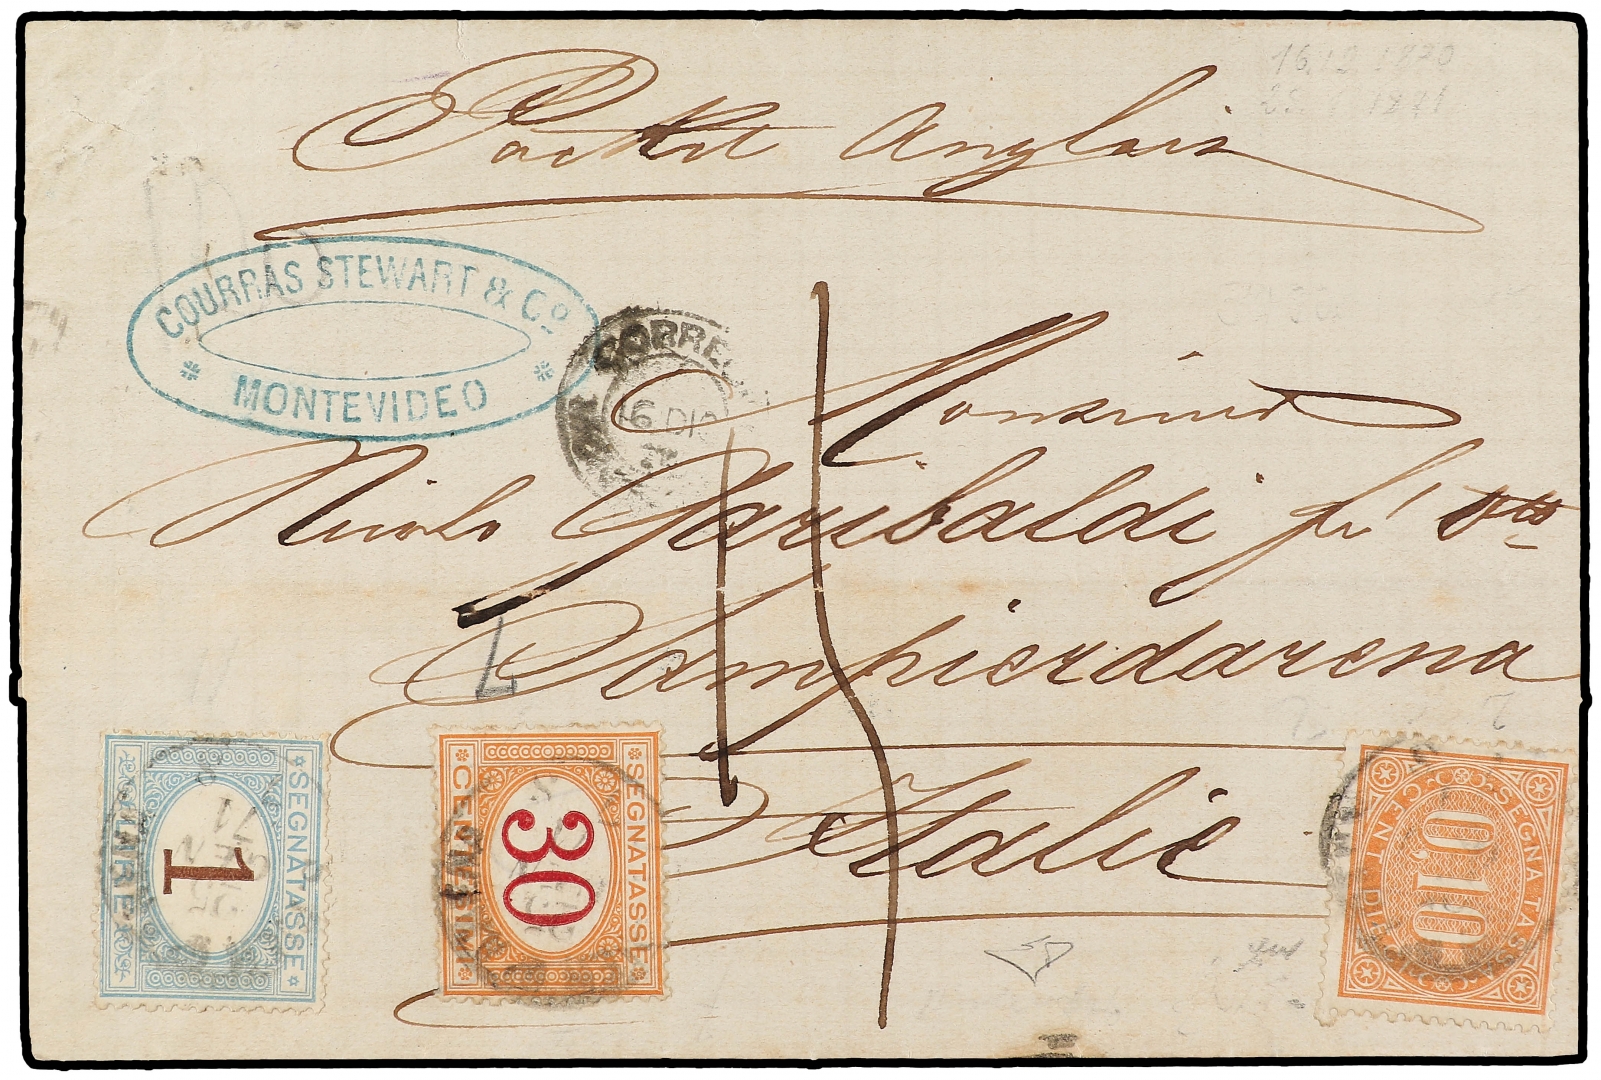 16.12 1870
25. 1 1871
Packet Anglais
COURRAS STEWART & Co.
MONTEVIDEO
CORREO
16 DIC
Monsieur
Nicolo Garibaldi fu
Sampierdarena
Italie
SEGNATASSE
1
LIRE
SEGNATASSE
30
CENTESIMI
SEGNA TASSA
0,10
CENT. DIECI